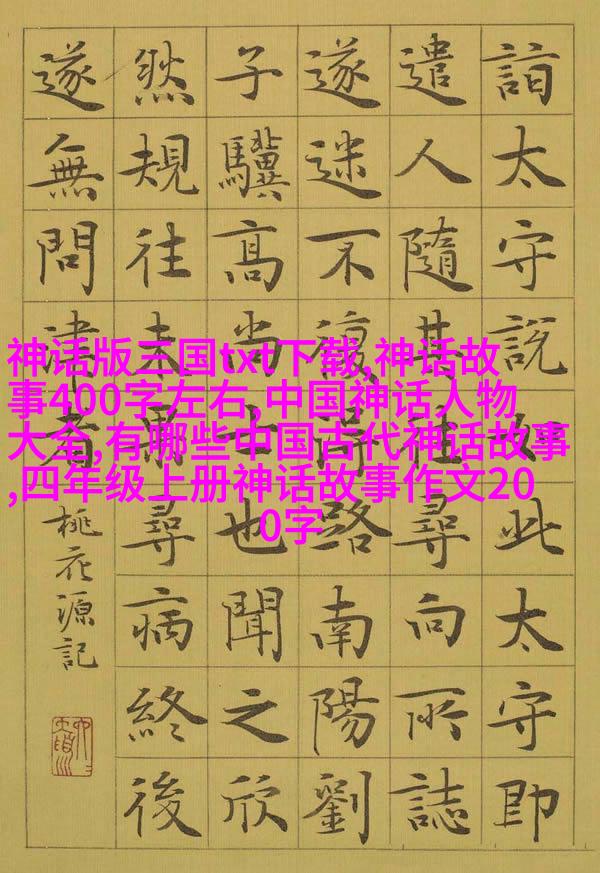 詣太守說如此太守即
遣人隨其往尋向所誌
遂迷不復得路南陽劉
子驥高尚士也聞之欣
然規往未果尋病終後
遂無問津者
桃花源記
神话版三国txt下载,神话故
事400字左右,中国神话人物
大全,有哪些中国古代神话故事
,四年级上册神话故事作文20
0字